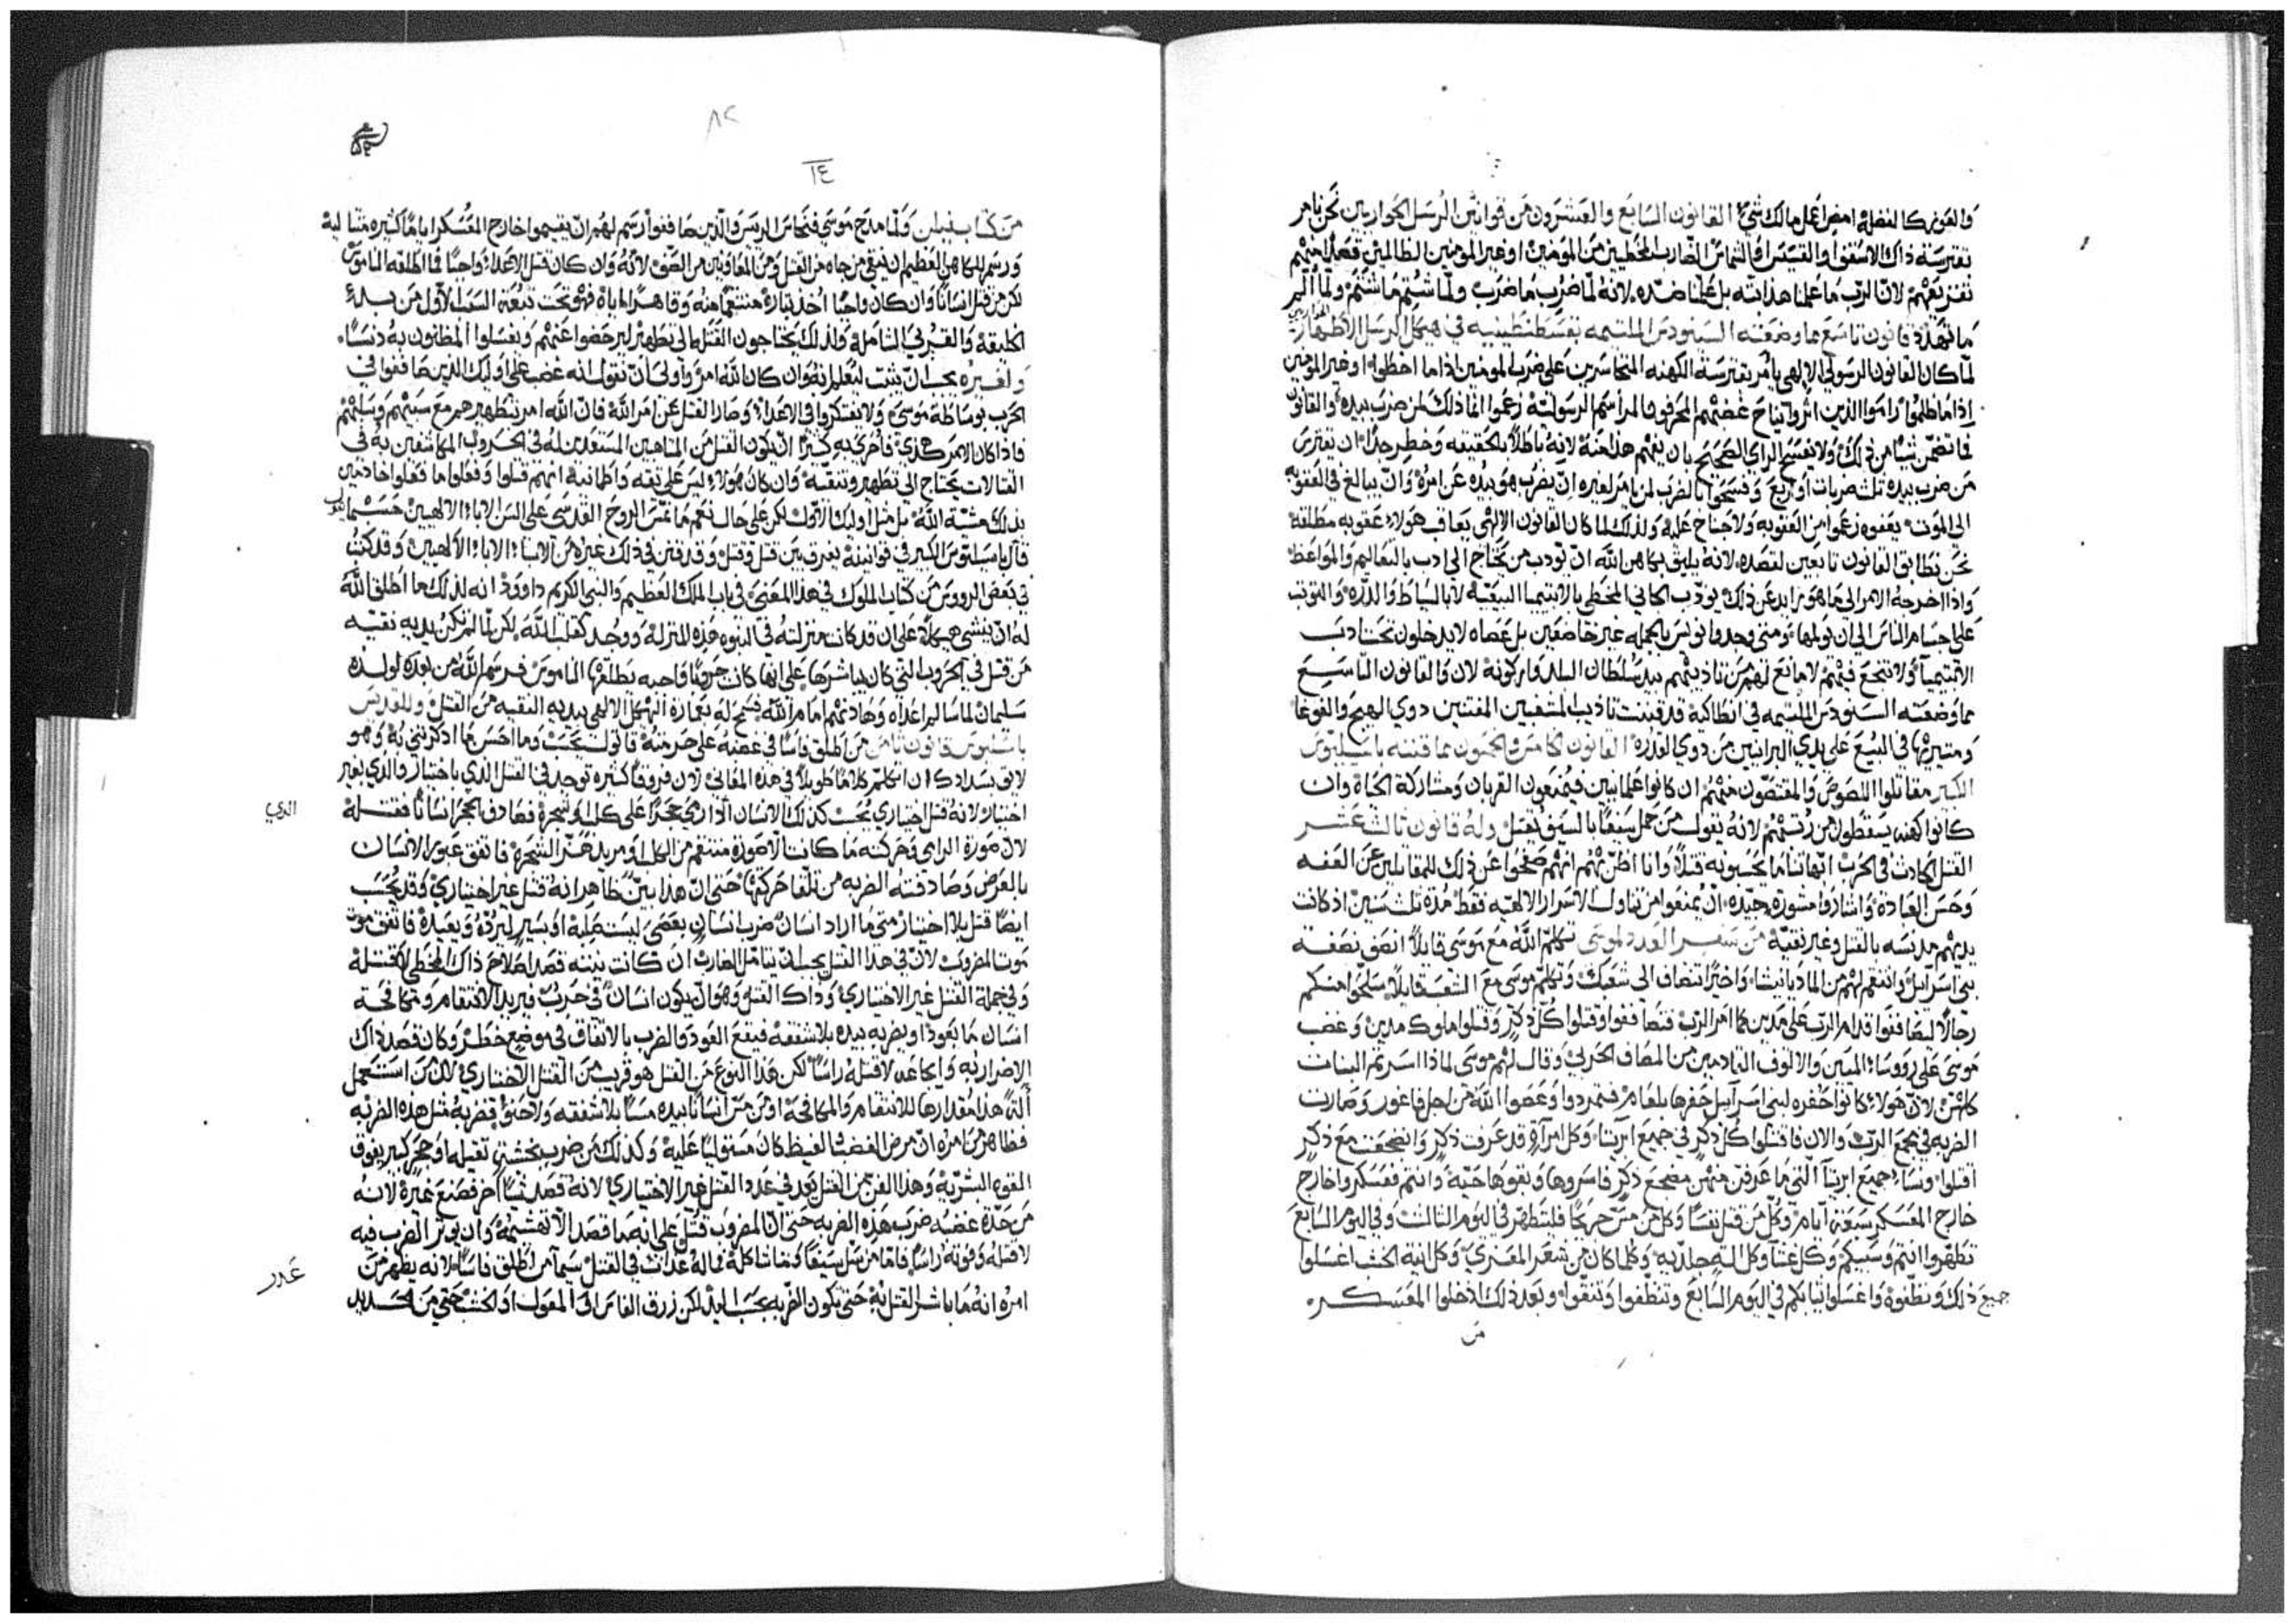 والعون كالفضله امض اعمل مالك شيء القانون السابع والعشرون من قوانين الرسل الحواريين نحن نامر
بقترسة ذاك الاسقف او القسيس او الشماس الضارب المخطيين من المومنين او غير المومنين الظالمين قصدا منهم
تفزيعهم لان الرب ما علمنا هذا البته بل علمنا ضده لانه لما ضرب ما ضرب ولما شتم ما شتم ولما ألم
ما تهدد قانون تاسع مما وضعته السينودس الملتيمه بقسطنطينيه في هيكل الرسل الاطهار
لما كان القانون الرسولي الالهي يامر بقترسة الكهنه المتجاسرين على ضرب المومنين اذا ما اخطوا او غير المومنين
اذا ما ظلموا راموا الذين اثروا نجاح غضبهم المحرفون المراسم الرسوليه زعموا انما ذلك لمن ضرب بيده والقانون
فما تضمن شيا من ذلك ولا يفسح الراي الصحيح بان يفهم هذا منه لانه باطلا بالحقيقه وخطر جدا ان تقترس
من ضرب بيده ثلث ضربات او اربع وفسحوا بالضرب لمن يامر لغيره ان يضرب هو بيده عن امره وان يبالغ في العقوبه
الى الموت يعفوه زعموا من العقوبه ولا جناح عليه ولذلك لما كان القانون الالهي يعاقب هولاء عقوبه مطلقه
نحن نطابق القانون تابعين لقصده لانه يليق بكاهن الله ان يودب من يحتاج الى ادب بالتعاليم والمواعظ
واذا اخرجه الامر الى ما هو زايد عن ذلك يودب الجاني المخطي بالابتيميا البيعيه لا بالسياط والدره والتوثب
على اجسام الناس الى ان يولمها ومتى وجدوا نوليس بالجمله غير خاضعين بل عصاه لا يدخلون تحت ادب
الابتيميا ولا تنجع فيهم لا مانع لهم من تاديبهم بيد سلطان البلد واركونه لان والقانون التاسع
مما وضعته السينودس الملتيمه في انطاكيه قد قننت تاديب المشغبين المفتنين دوي الهيج والغوغا
ومثيريها في البيع على يدي البرانيين من دوي القدره القانون الخامس والخمسون مما قننه باسيليوس
الكبير مقاتلوا اللصوص والمقتصون منهم ان كانوا علمانيين فيمنعون القربان ومشاركة الحياه وان
كانوا كهنه يسقطون من رتبهم لانه يقول من حمل سيفا بالسيف يقتل وله قانون ثالث عشر
القتل الحادث في الحرب اباهاتنا ما يحسبونه قتلا وانا اظن بهم انهم صفحوا عن ذلك للمقاتلين عن العفه
وحسن العباده واشاروا مشوره جيده ان يمنعوا من تناول الاسرار الالهيه فقط مده ثلث سنين اذ كانت
يديهم مدنسه بالقتل وغير نقيه من سفر العدد لموسى تكلم الله مع موسى قايلا انصف نصفة
بني اسرايل وانتقم لهم من المادنانيين واخيرا تنضاف الى شعبك وتكلم موسى مع الشعب قايلا سلحوا منكم
رجالا ليصاففوا قدام الرب على مدين كما امر الرب فتصاففوا وقتلوا كل ذكر وقتلوا ملوك مدين وغضب
موسى على رووسا المين والالوف القادمين من المصاف الحربي وقال لهم موسى لماذا اسرتم البنات
كلهن لان هولاء كانوا عثره لبني اسرآيل حسب بلعام فتمردوا وعصوا الله من اجل فاغور وصارت
الضربه في مجمع الرب والان فاقتلوا كل ذكر في جميع ابريا وكل امرآة قد عرفت ذكر وانضجعت مع ذكر
اقتلوا ونساء جميع ابريا اللتي ما عرفن منهن مضجع ذكر فاسروها وبقوها حيه وانتم فعسكروا خارج
خارج المعسكر سبعة ايام وكل من قتل نفسا وكل من مس جريحا فليتطهر في اليوم الثالث وفي اليوم السابع
تطهروا انتم وسبيكم وكل غشا وكل اله جلديه وكلما كان من شعر المعزي وكل انيه الخشب اغسلوا
جميع ذلك ونظفوه واغسلوا ثيابكم في اليوم السابع وتنظفوا وتنقوا وبعد ذلك ادخلوا المعسكره
من
٨٢
١٤
من كتاب فيلن ولما مدح موسى فنحاس الريس والذين صاففوا رسم لهم ان يقيموا خارج المعسكر اياما كثيره متتاليه
ورسم للكاهن العظيم ان ينقي من جاه من القتل ومن المعاونين من الصف لانه وان كان قتل الاعداء واجبا مما اطلقه الناموس
لكن من قتل انسانا وان كان واجبا اخذ بثاره منتقما منه وقاهرا اياه فهو تحت تبعة السبب الاول من بدء
الخليقه والقربى الشامله ولذلك يحتاجون القتله الى تطهير ليرحضوا عنهم ويغسلوا المظنون به دنسا
ولغيره يجب ان يثبت ليعلم انه وان كان الله امر واولى ان نقول انه غضب على اوليك الدين صاففوا في
الحرب بوساطة موسى ولا يفتكروا في الاعداء وصار القتل عن امر الله فان الله امر بتطهيرهم مع سبيهم وسلبهم
فاذا كان الامر هكذي فاحرى به كثيرا ان يكون القتل من المتاهبين المستعدين له في الحروب المكاشفين به في
القتالات يحتاج الى تطهير وتنقيه وان كان هولاء ليس على ثقه واطمانيه انهم قتلوا وفعلوا ما فعلوا خادمين
بذلك مشية الله بل مثل اوليك الاولين لكن على حال نعم ما نمس الروح القدسي على السن الابا الالهيين حسبما يقول
قال باسيليوس الكبير في قوانينه يفرق بين قتل وقتل وقد قنن في ذلك غيره من الابا الالهيين وقد كتب
في بعض الرووس من كتاب الملوك في هذا المعنى في باب الملك العظيم والنبي الكريم داوود انه لذلك ما اطلق الله
له ان ينشي هيكله على ان قد كانت منزلته في النبوه هذه المنزله ووجد كقلب الله لكن لما لم تكن يديه نقيه
من قتل في الحروب التي كان يباشرها على انها كانت حروبا واجبه يطلقها الناموس فرسم الله من بعده لولده
سليمان لما سالم اعداه وهادنهم امام الله فسمح له بعمارة الهيكل الالهي بيديه النقيه من القتل وللقديس
باسيليوس قانون ثامن من اطلق فاسا في غضبه على حرمته قاتول يحسب وما احسن ما اذكرتني به وهو
لايق بسدادك ان اتكلم كلاما طويلا في هذه المعاني لان فروقا كثيره توجد في القتل الذي باختيار والذي بغير
اختيار لانه قتل اختياري يحسب كذلك الانسان اذا رمى حجرا على كلب او شجره فصادف الحجر انسانا فقتله
الذي
لان صورة الرامي وحركته ما كانت الا صورة منتقم من الكلب او مريد هز الشجره فاتفق عبور الانسان
بالعرض وصادفته الضربه من تلقا حركتها حتى ان هذا بين ظاهر انه قتل غير اختياري وقد يحسب
ايضا قتل بلا اختيار متى ما اراد انسان ضرب انسان بعصى ليست صلبه او بسير ليرده ويعيده فاتفق موت
موت المضروب لان في هذا القتل يجب ان يتامل الضارب ان كانت نيته قصد اصلاح ذاك المخطي لا قتله
وفي جملة القتل غير الاختياري وذاك القتل وهو ان يكون انسان في حرب فيريد الانتقام ومكافحة
انسان ما بعود او يضربه بيده بلا شفقه فيقع العود والضرب بالاتفاق في موضع خطر وكان قصد ذاك
الاضرار به وايجاعه لا قتله راسا لكن هذا النوع من القتل هو قريب من القتل الاختياري لان من استعمل
الة هذا مقدارها للانتقام والمكافحه او من مس انسانا بيده مسا بلا شفقه ولا حنو فضربه مثل هذه الضربه
فظاهر من امره ان مرض الغضب والغيظ كان مستوليا عليه وكذلك من ضرب بخشبه ثقيله او حجر كبير يفوق
القوه البشريه وهذا الفن من القتل يعد في عدد القتل غير الاختياري لانه قصد شيا اخر فصنع غيره لانه
من حدة غضبه ضرب هذه الضربه حتى ان المضروب قتل على انه ما قصد الا تهشيمه وان يوثر الضرب فيه
لا قتله وموته راسا فاما من سل سيفا وما شاكله فماله عذر البته في القتل سيما من اطلق فاسا لانه يظهر من
عذر
امره انه ما باشر القتل بيده حتى يكون الضربه بحسب ايده لكن زرق الفاس او المعول او الخشب حتى من الحديد